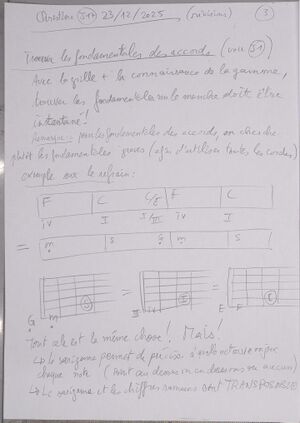 Question 517 23/12/2025 (révisions) 3
Trouver les fondamentales des accords (voir 51)
Avec la grille + la connaissance de la gamme,
trouver les fondamentales sur le manche doit être
instantané!
Remarque: pour les fondamentales des accords, on cherche
plutôt les fondamentales graves (afin d'utiliser toutes les cordes)
exemple avec le refrain:
F C C/g F C
IV I I/III IV I
= m s G m s
= =
G m III E F
Tout cela est la même chose! Mais!
↳ le sargam permet de préciser à quelle octave on joue
chaque note (point au dessus ou en dessous ou aucun)
↳ le sargam et les chiffres romains sont TRANSPOSABLES